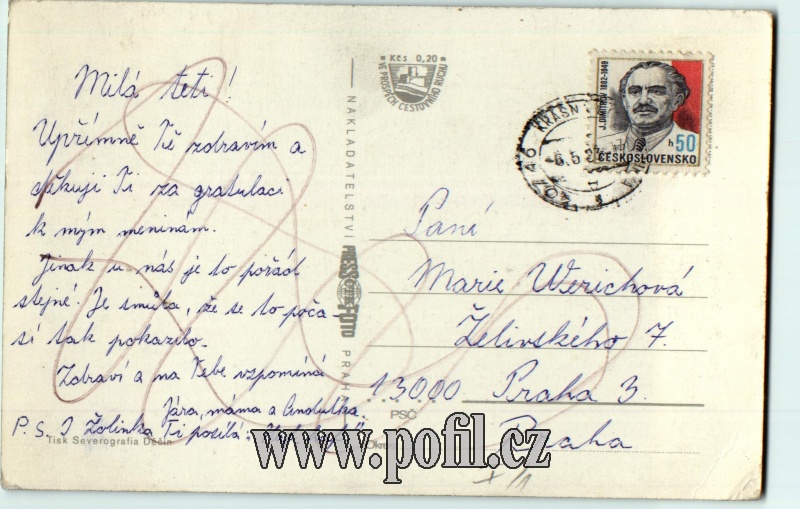 Milá teti!
Upřímně Tě zdravím a
děkuji Ti za gratulaci
k mým meninám.
Jinak u nás je to pořád
stejné. Je smůla, že se to poča-
sí tak pokazilo.
Zdraví a na Tebe vzpomíná
Jára, máma a
P.S. I Žolinka Ti posílá:
Tisk Severografia Děčín
Kčs 0,20
VE PROSPĚCH CESTOVNÍHO RUCHU
NAKLADATELSTVÍ PRESSFOTO PRAHA
J. DIMITROV 1882-1949
h 50
ČESKOSLOVENSKO
KRÁSN
6.5.
407 46
Paní
Marie Werichová
Želivského 7.
13000 Praha 3.
PSČ
Praha
www.pofil.cz